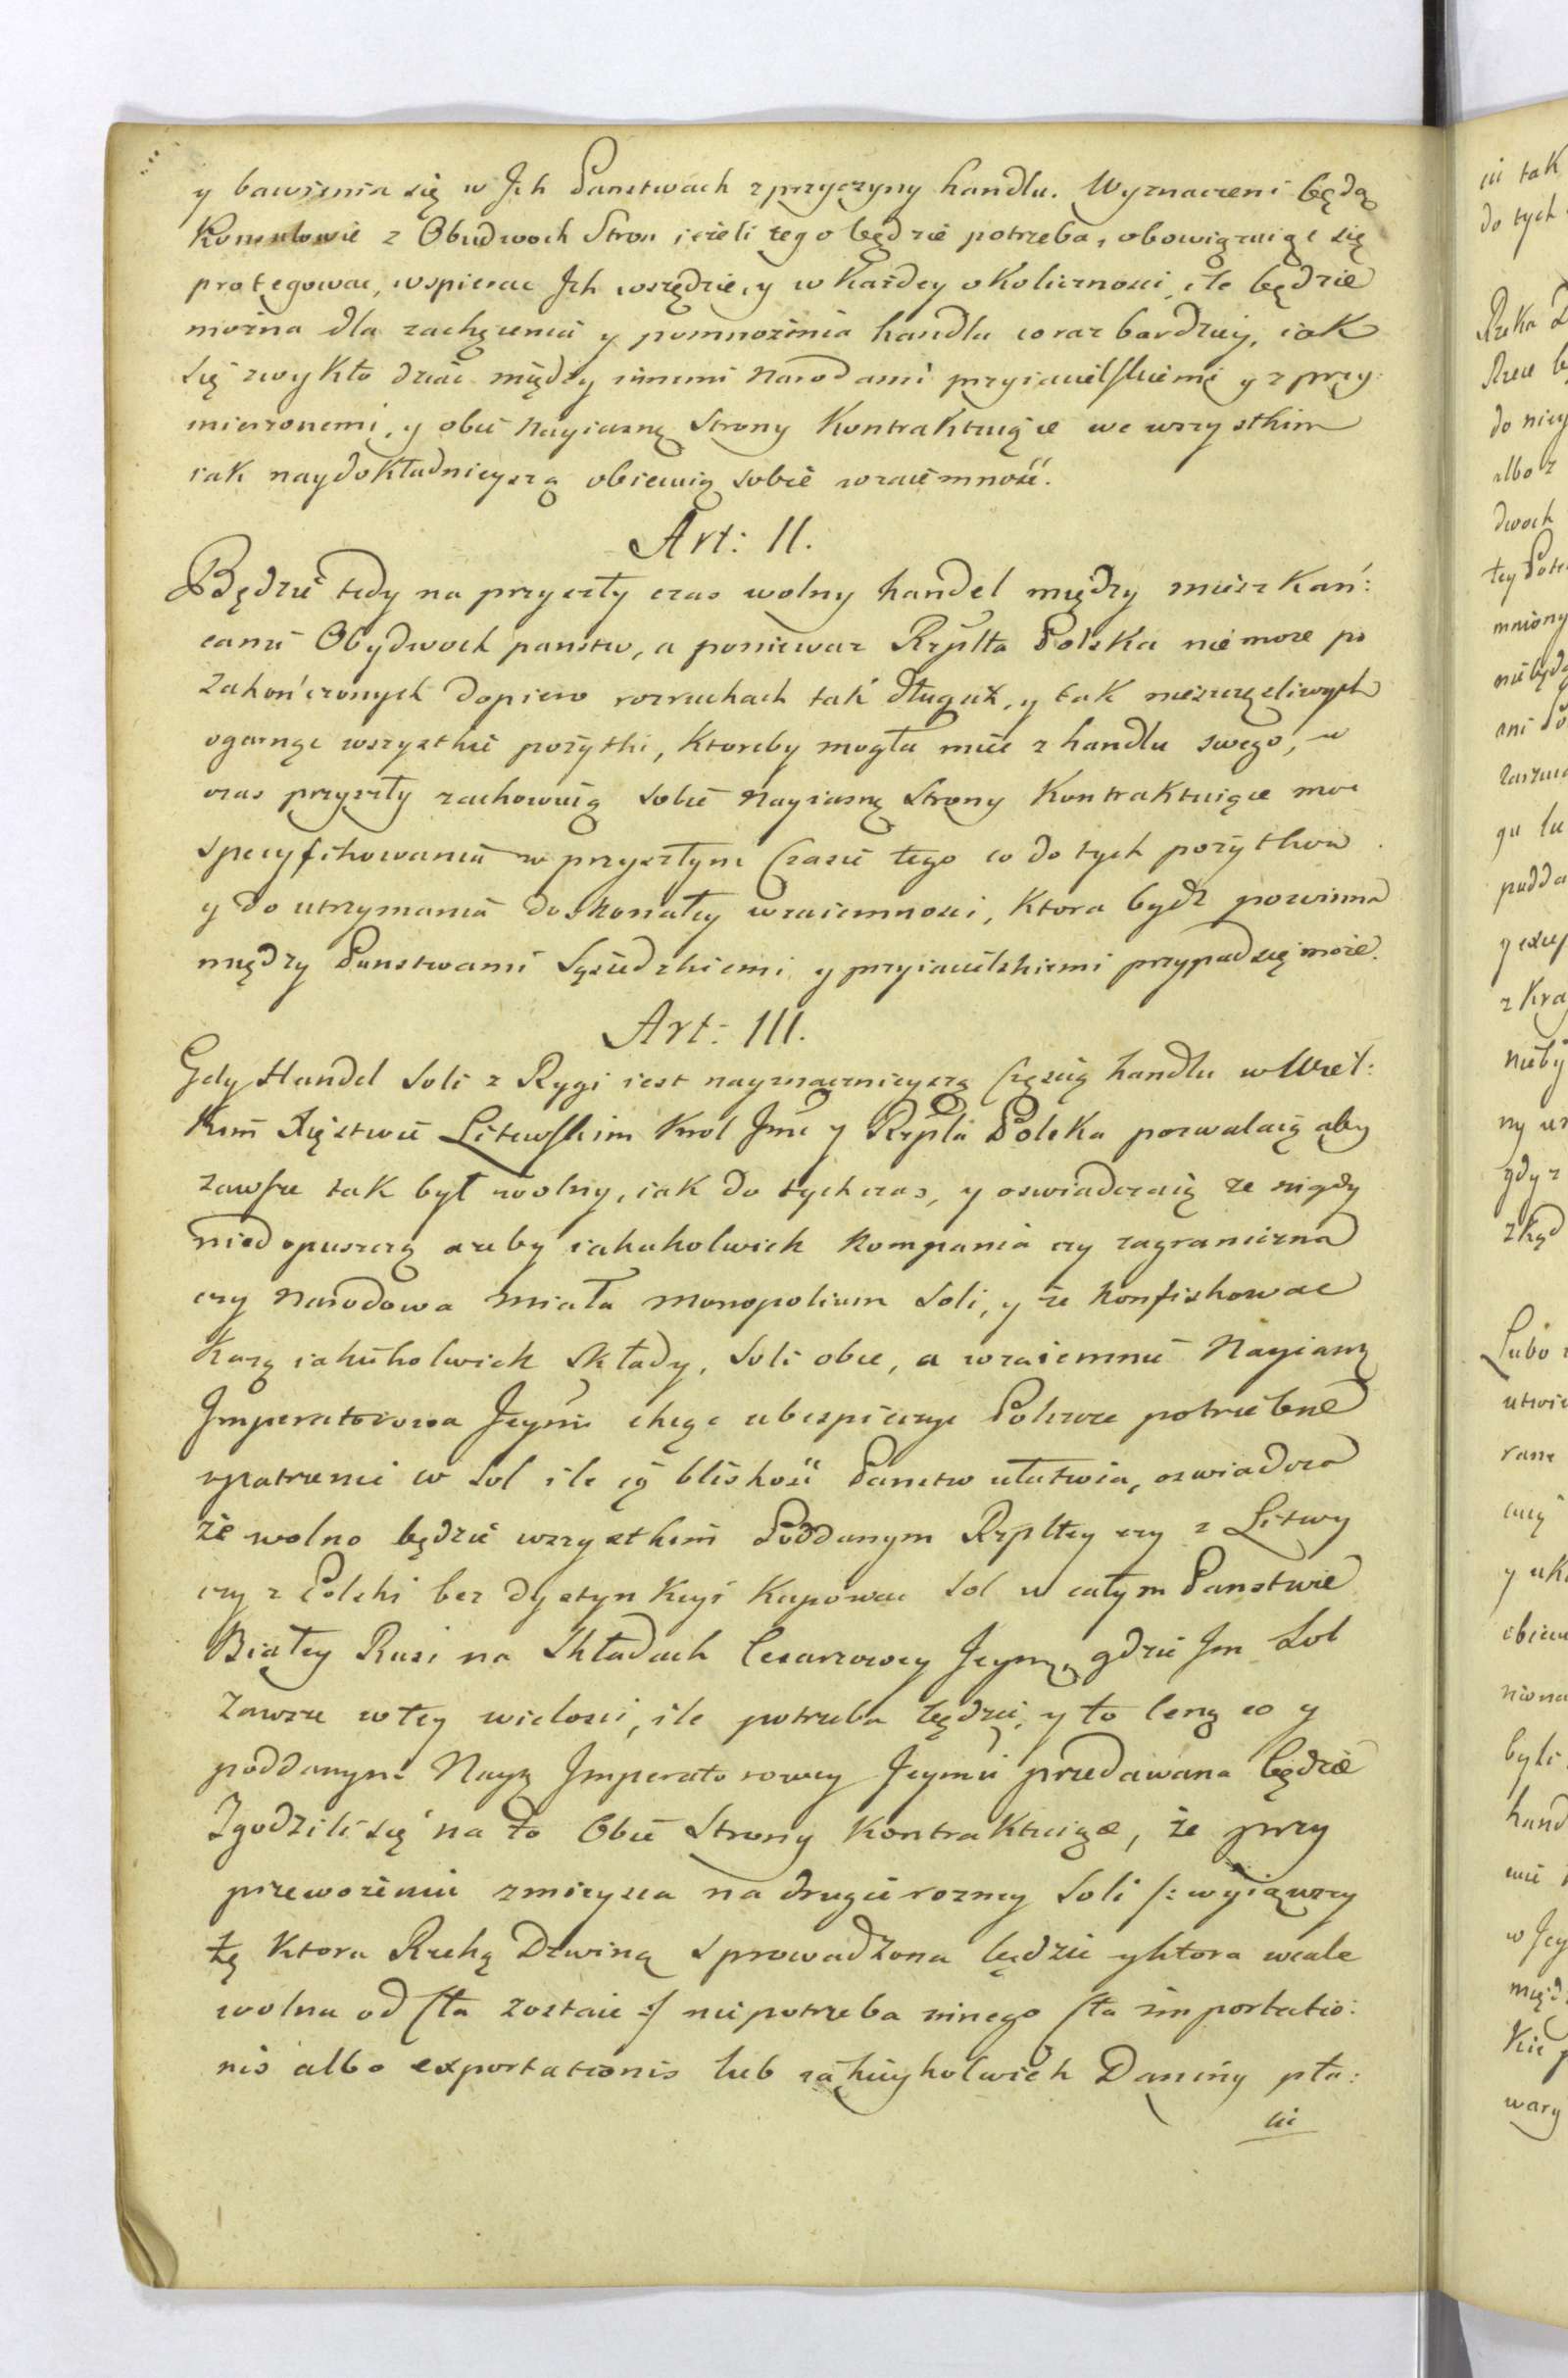 y bawienia się w Jch Panstwach z przyczyny handlu. Wyznaczeni będą
Konsulowie z Obudwoch Stron ieżeli tego będzie potrzeba, obowiązuiąc się
protegowac, wspierac Jch wszędzie, y w każdey okoliczności, ile będzie
można dla zachęcenia y pomnożenia handlu coraz bardziey, iak
się zwykło dziać między innemi Narodami przyiacielskiemi y z przy:
mierzonemi, y obie Nayiasnę Strony Kontraktuiące we wszystkim
iak naydokładnieyszą obiecuią sobie wzaiemność.
Art: II.
Będzie tedy na przyszły czas wolny handel między mieszkań:
cami Obydwoch panstw, a poniewaz Rzplta Polska nie moze po
zakończonych dopiero rozruchach tak długich, y tak nieszczęsliwych
ogarnąc wszystkie pożytki, ktoreby mogła miec z handlu swego, w
czas przyszły zachowuią sobie Nayiasnę Strony Kontraktuiące moc
specyfikowania w przyszłym Czasie tego co do tych pożytkow
y do utrzymania doskonałey wzaiemnosci, ktora bydź powinna
między Panstwami Sąsiedzkiemi y przyiacielskiemi przypadź się może.
Art: III.
Gdy Handel Soli z Rygi iest nayznacznieyszą Częścią handlu w Wiel:
kim Xięstwie Litewskim Krol Jmc y Rzplta Polska pozwalaią aby
zawsze tak był wolny, iak do tych czas, y oswiadczaią ze nigdy
niedopuszczą azeby iakakolwiek kompania czy zagraniczna
czy Narodowa miała monopolium Soli, y że konfiskowac
każą iakiekolwiek Składy, Soli obce, a wzaiemnie Nayiasn
Jmperatorowa Jeymc chcąc ubespieczyc Polszcze potrzebne
opatrzenie w Sol ile iey bliskość Panstw ułatwia, oswiadcza
że wolno będzie wszystkim Poddanym Rzpltey czy z Litwy
czy z Polski bez dystynkcyi kupowac Sol w całym Panstwie
Białey Rusi na Składach Cesarzowey Jeymc, gdzie Jm Sol
zawsze w tey wielosci, ile potrzeba będzie, y to ceną co y
poddanym Nayj Jmperatorowey Jeymci przedawana będzie
Zgodzili się na to Obie Strony Kontraktuiące, że przy
przewożeniu z mieysca na drugie rozney Soli /: wyiąwszy
tę ktora Rzeką Dzwiną sprowadzona będzie y ktora wcale
wolna od Cła zostaie :/ niepotrzeba innego Cła importatio:
nis albo exportationis lub iakieykolwiek Daniny pła:
cic